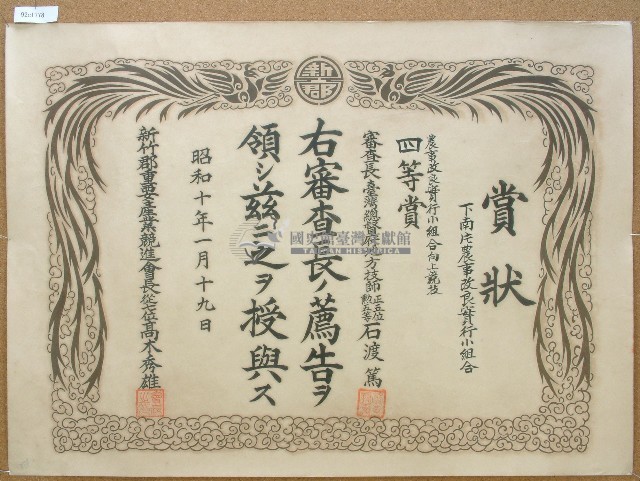 新郡
賞狀
下南庄農事改良實行小組合
農事改良實行小組合向上競技
四等賞
審查長臺灣總督府地方技師 正五位 勲五等 石渡篤
右審查長ノ薦告ヲ
領シ茲ニ之ヲ授與ス
昭和十年一月十九日
新竹郡重要生產業競進會長從七位高木秀雄
國史館臺灣文獻館
TAIWAN HISTORICA